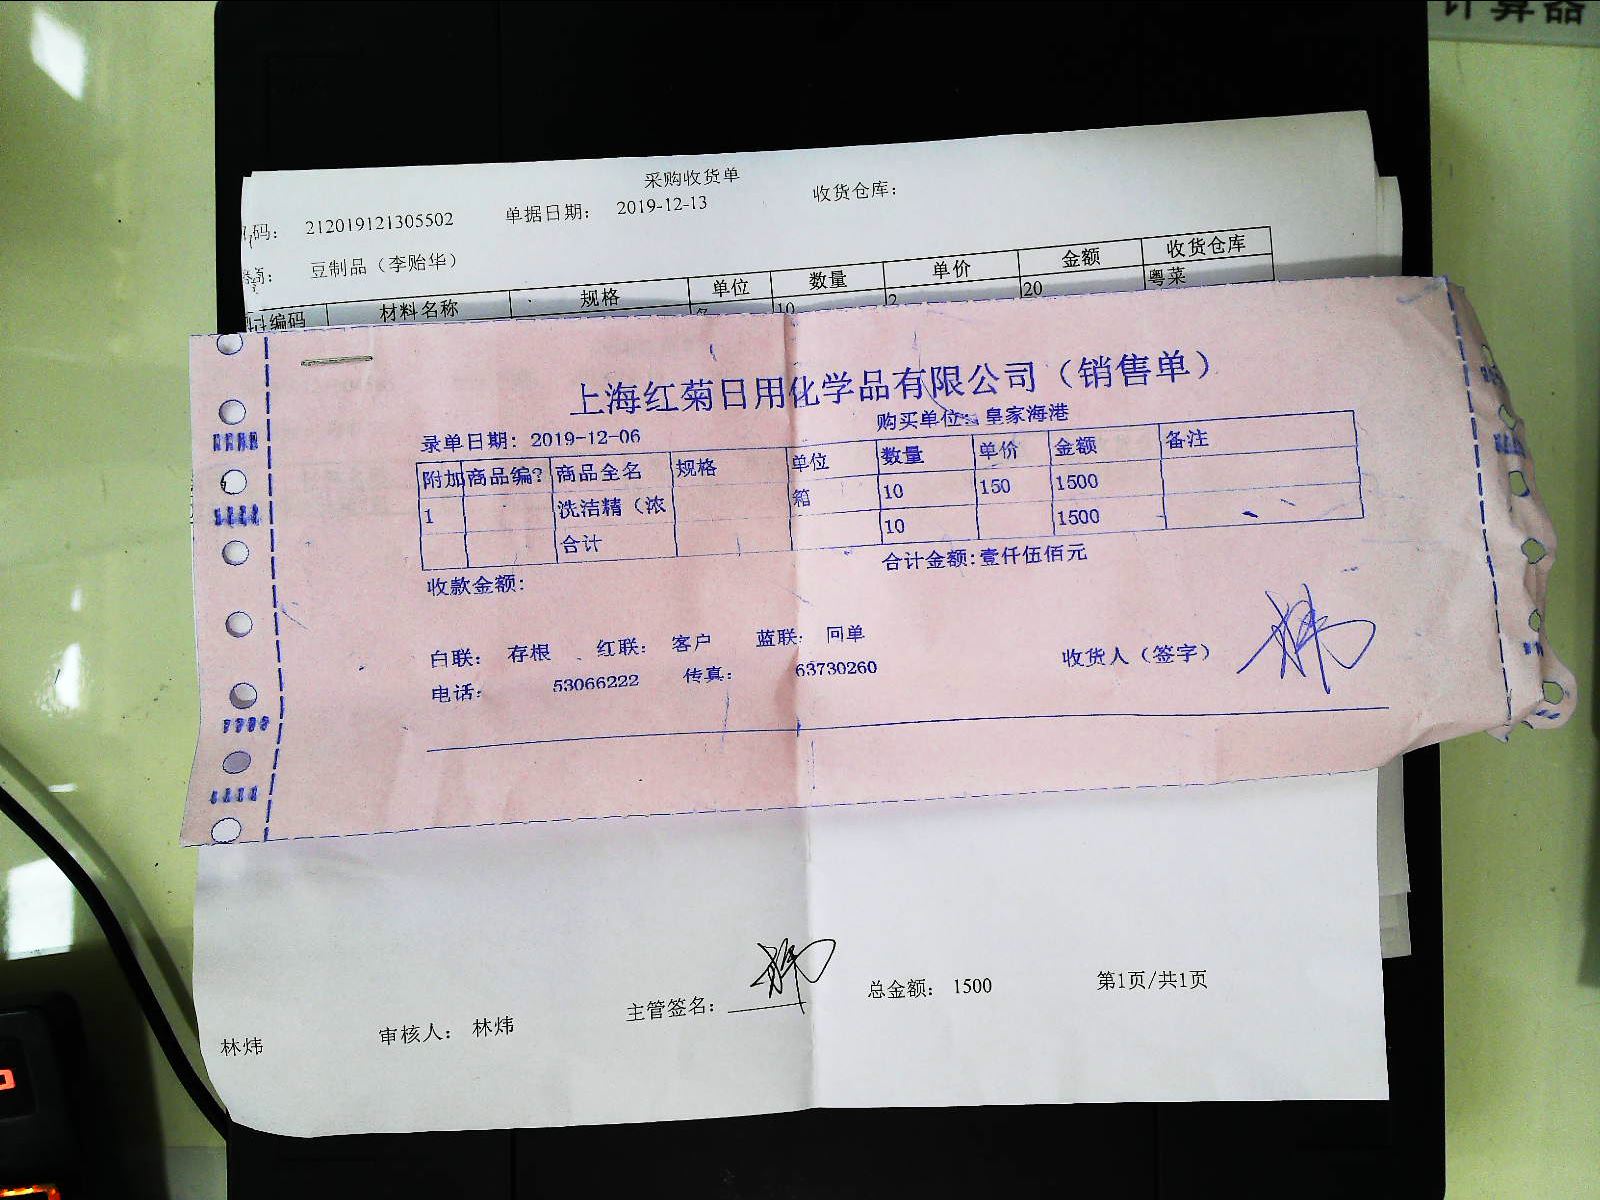 计算器
采购收货单
码： 212019121305502 单据日期： 2019-12-13 收货仓库：
豆制品（李贻华）
编码 材料名称 规格 单位 数量 单价 金额 收货仓库
10 2 20 粤菜
上海红菊日用化学品有限公司（销售单）
录单日期: 2019-12-06 购买单位: 皇家海港
附加 商品编? 商品全名 规格 单位 数量 单价 金额 备注
1 洗洁精（浓 箱 10 150 1500
合计 10 1500
收款金额: 合计金额:壹仟伍佰元
白联: 存根 红联: 客户 蓝联: 回单
电话: 53066222 传真: 63730260 收货人（签字）
林炜 审核人: 林炜 主管签名: 总金额: 1500 第1页/共1页